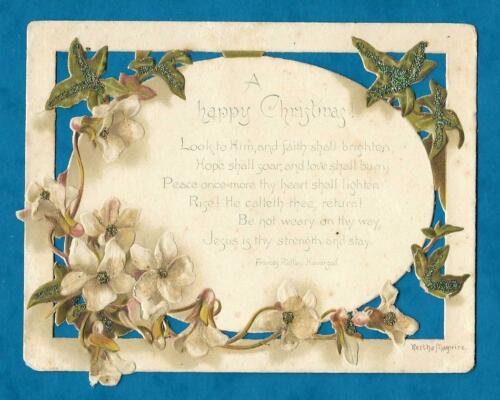 A
happy Christmas!
Look to Him, and faith shall brighten,
Hope shall soar, and love shall burn,
Peace once more thy heart shall lighten
Rise! He calleth thee, return!
Be not weary on thy way,
Jesus is thy strength and stay.
Frances Ridley Havergal.
Bertha Maguire.